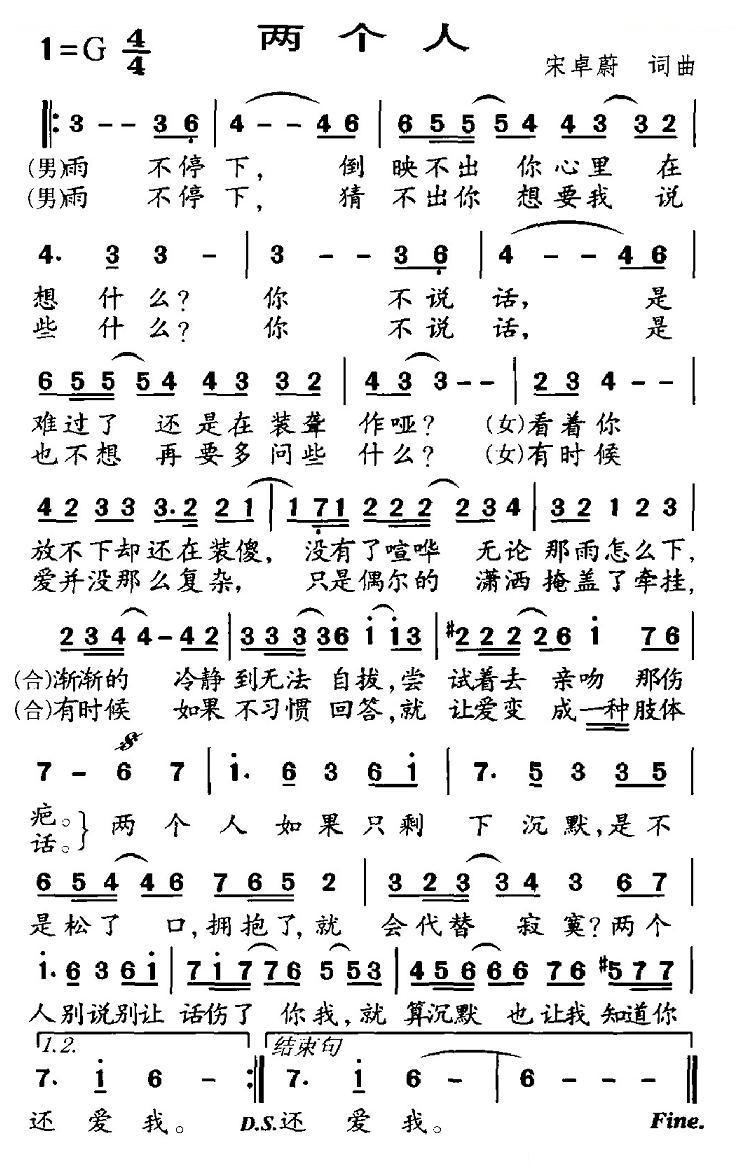 两个人
1=G 4/4
宋卓蔚 词曲
3 - - 3 6 | 4 - - 4 6 | 6 5 5 5 4 4 3 3 2 |
(男)雨 不停下, 倒 映不出 你心里 在
(男)雨 不停下, 猜 不出你 想要我 说
4. 3 3 - | 3 - - 3 6 | 4 - - 4 6 |
想 什 么? 你 不说 话, 是
些 什 么? 你 不说 话, 是
6 5 5 5 4 4 3 3 2 | 4 3 3 - - | 2 3 4 - - |
难过了 还是在 装聋 作哑? (女)看着你
也不想 再要多 问些 什么? (女)有时候
4 2 3 3 3. 2 2 1 | 1 7 1 2 2 2 2 3 4 | 3 2 1 2 3 |
放不下却还在装傻, 没有了喧哗 无论 那雨怎么下,
爱并没那么复杂, 只是偶尔的 潇洒 掩盖了牵挂,
2 3 4 4 - 4 2 | 3 3 3 3 6 i i 3 | #2 2 2 2 6 i 7 6 |
(合)渐渐的 冷静到无法 自拔,尝 试着去 亲吻 那伤
(合)有时候 如果 不习惯 回答,就 让爱变 成一种肢体
7 - 6 7 | i. 6 3 6 i | 7. 5 3 3 5 |
疤。} 两 个 人 如果只剩 下 沉默,是不
话。
6 5 4 4 6 7 6 5 2 | 3 2 3 4 3 6 7 |
是松了 口,拥抱了,就 会代替 寂寞?两个
i. 6 3 6 i | 7 i 7 7 6 5 5 3 | 4 5 6 6 6 7 6 #5 7 7 |
人别说别让 话伤了 你我,就 算沉默 也让我知道你
1.2. 结束句
7. i 6 - :| 7. i 6 - | 6 - - - |
还 爱 我。 D.S.还 爱 我。 Fine.